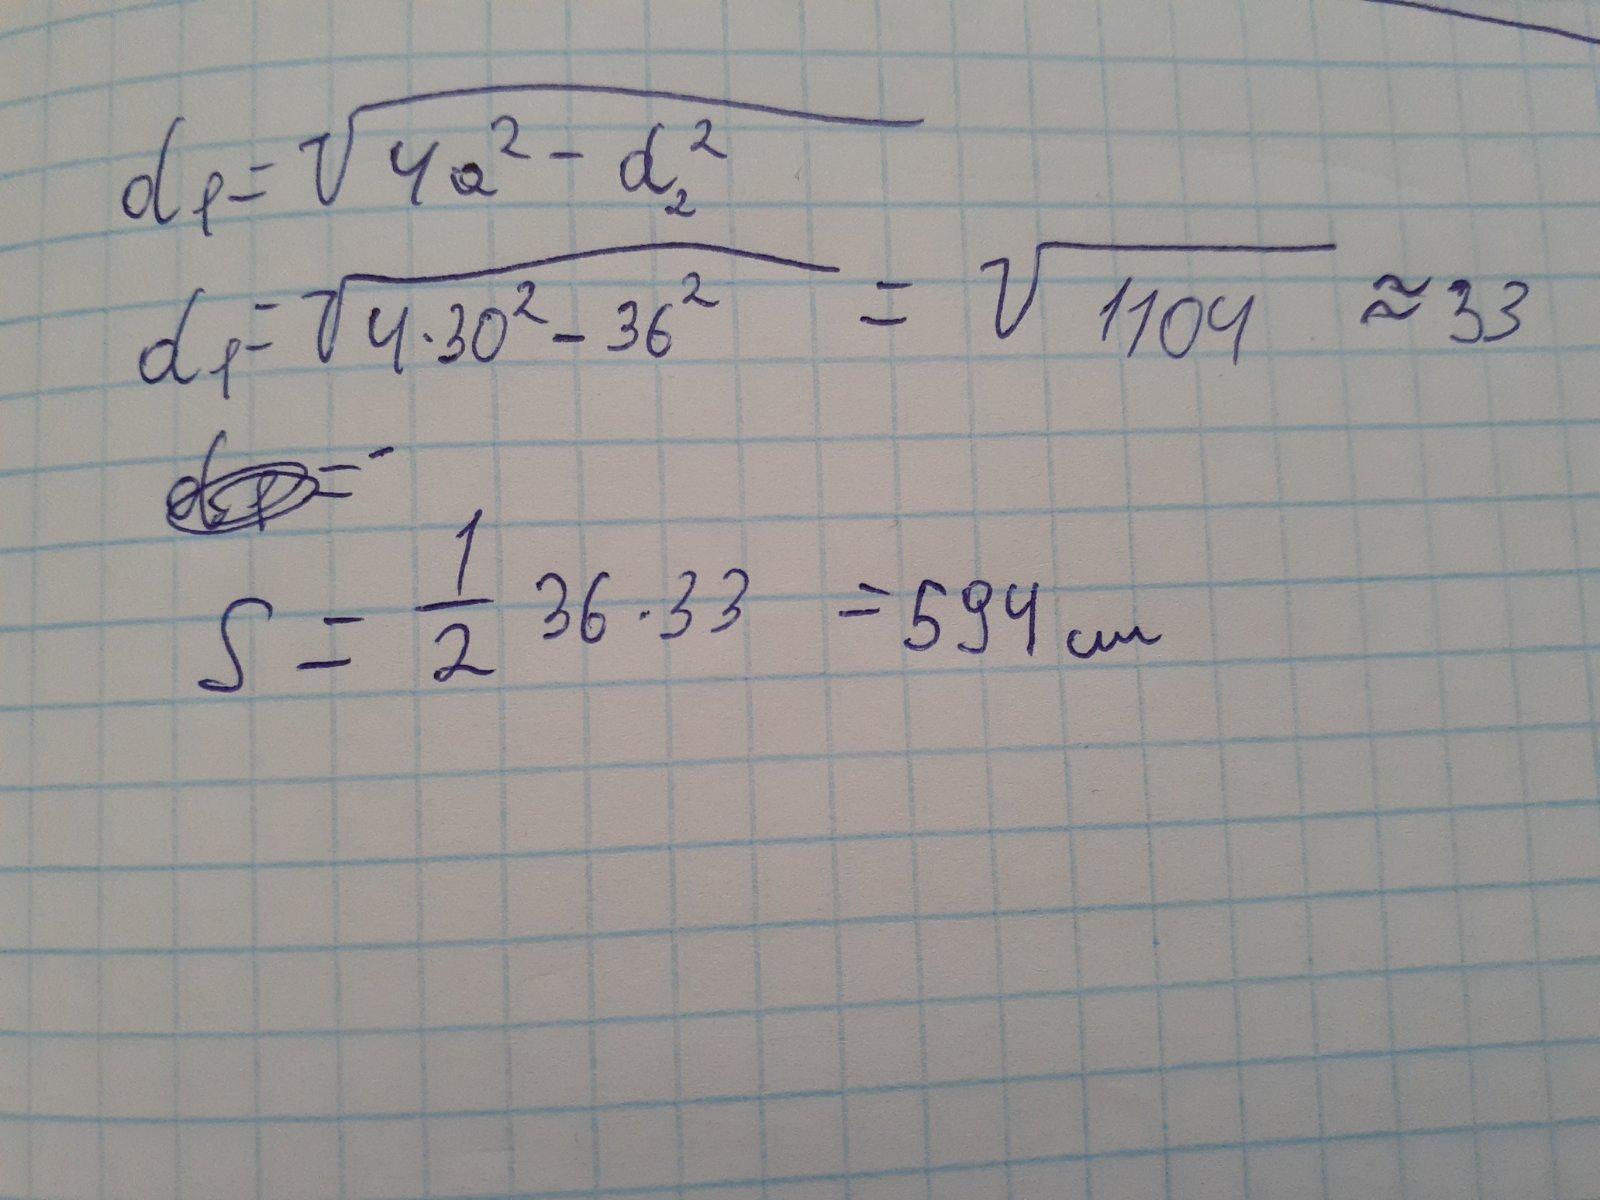 d₁ = √4a² - d₂²
d₁ = √4·30² - 36² = √1104 ≈ 33
S = 1/2 36·33 = 594 см